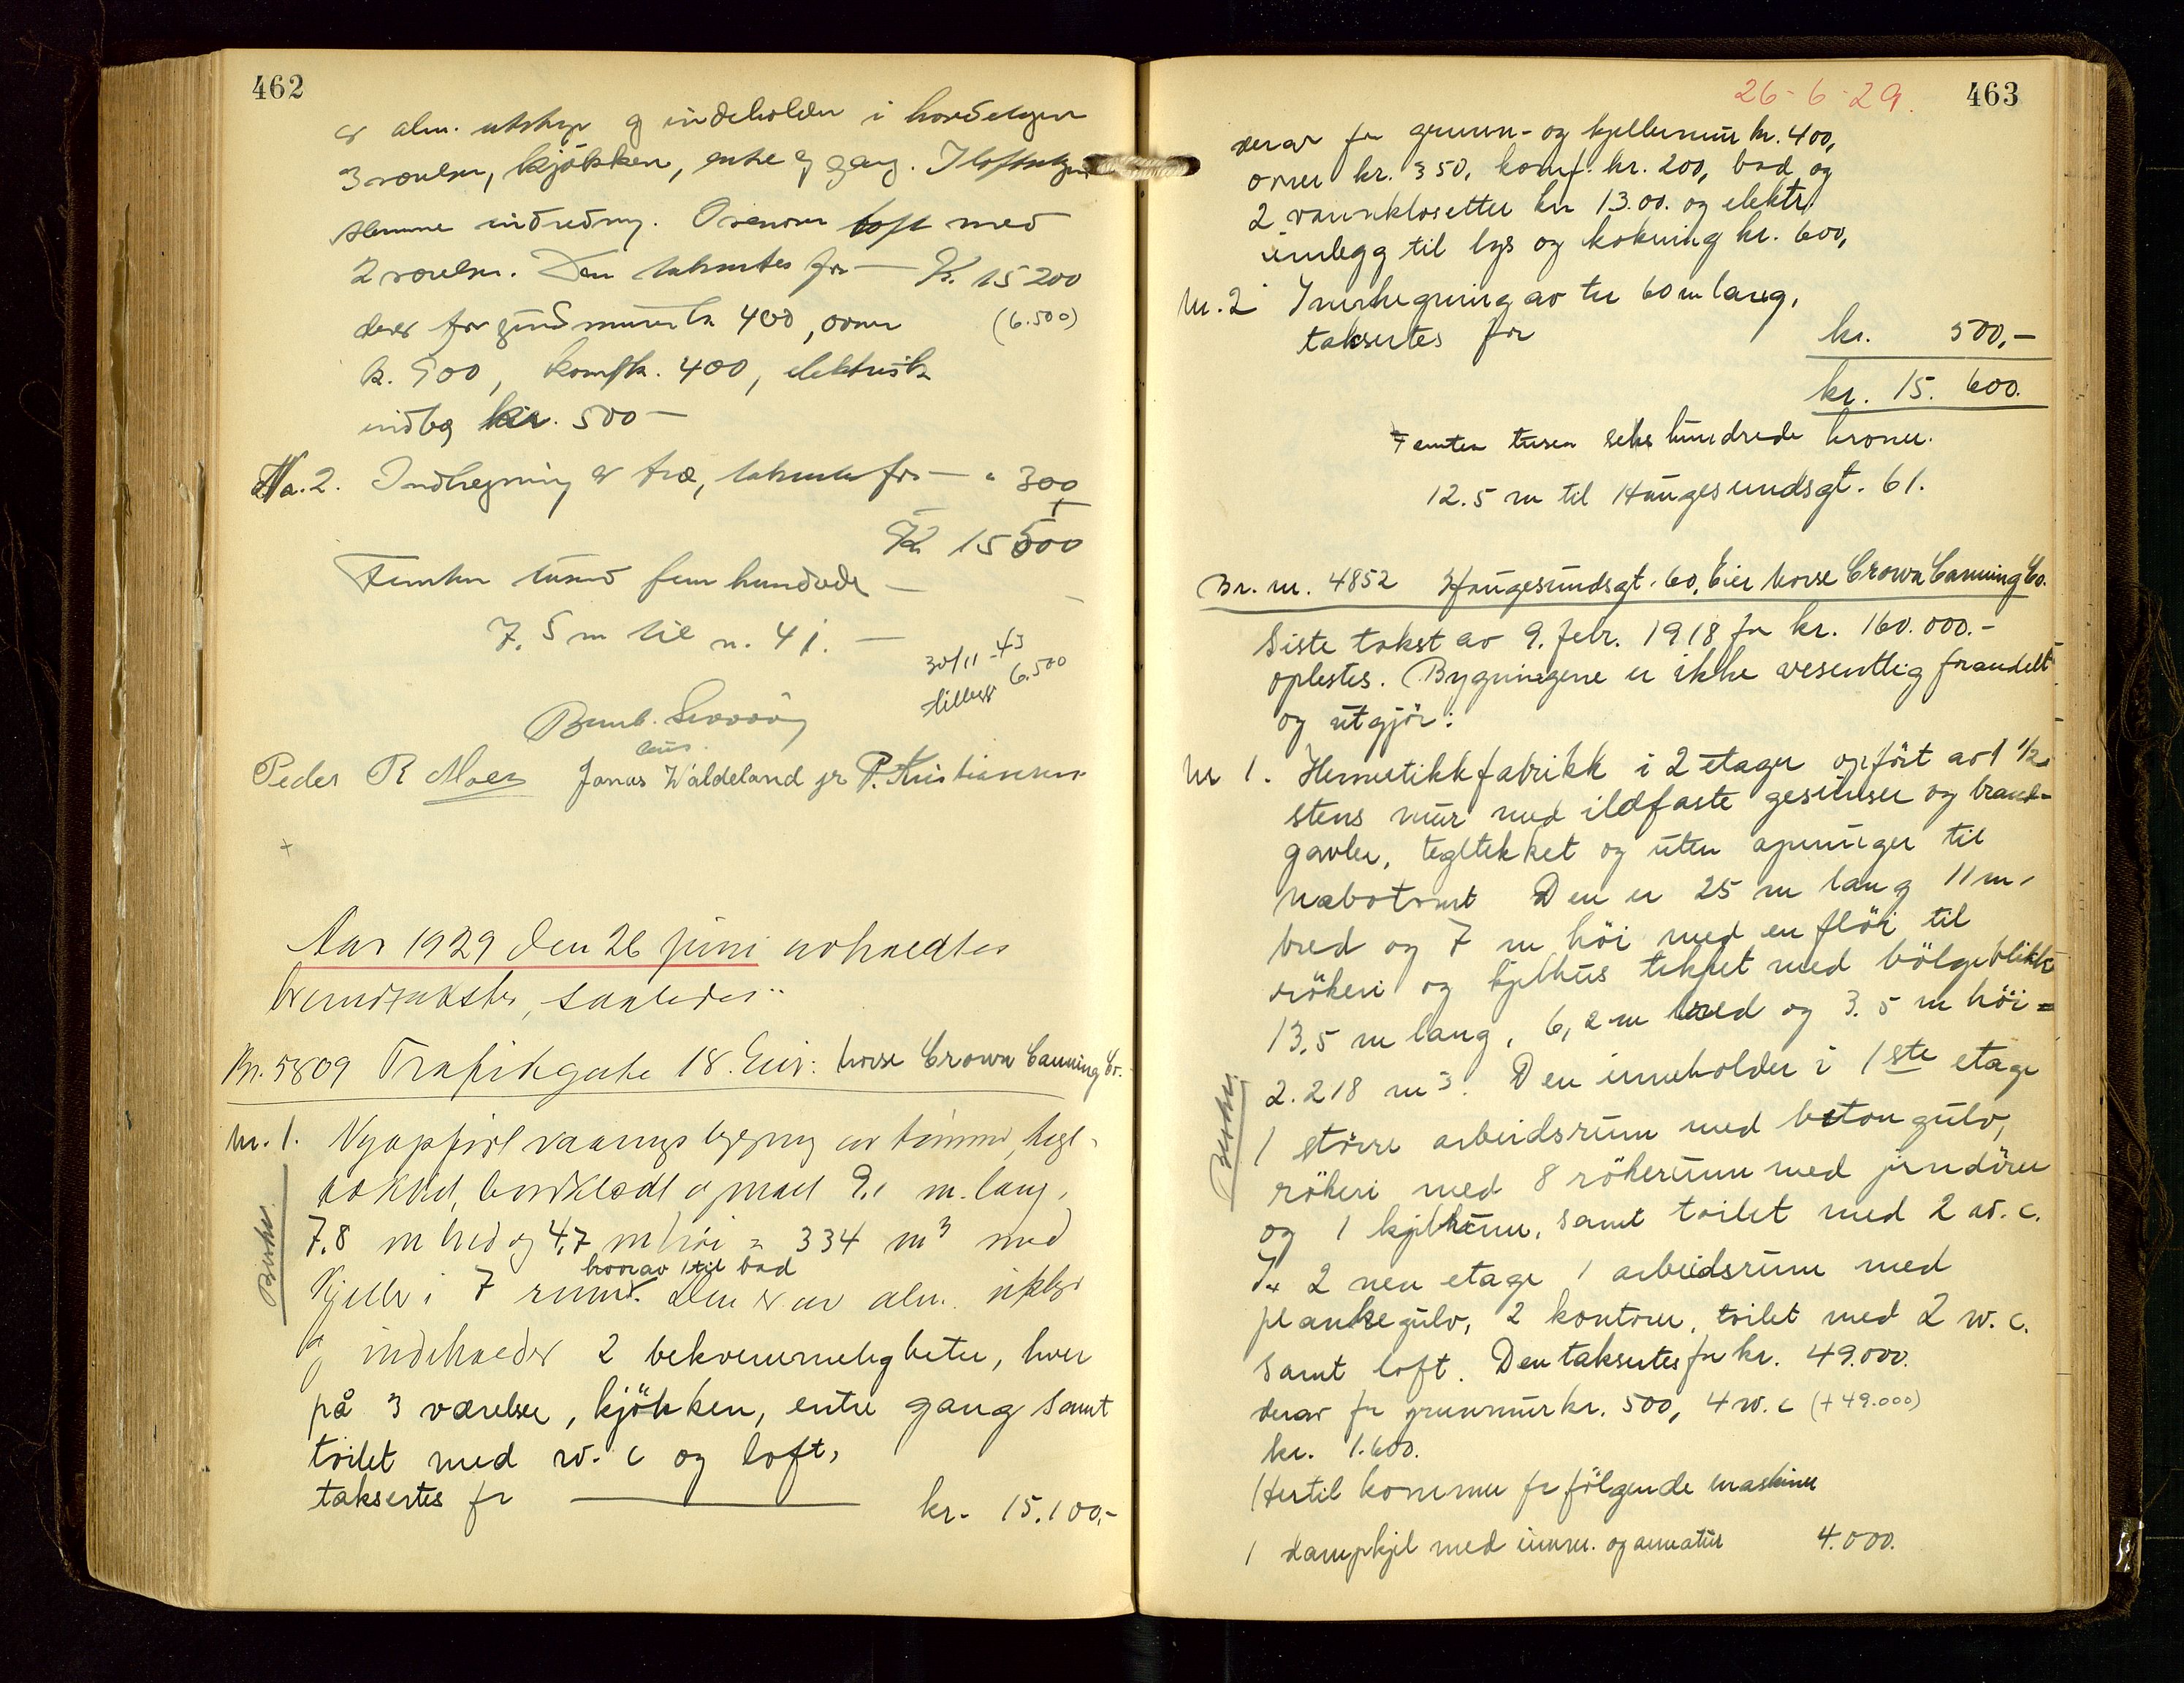 462
av alm. utstyr og indeholder i hovedetagen
3 værelser, kjökken, entre og gang. I loftsetagen
samme indredning. Ovenover loft med
2 værelser. Den taksertes for — Kr. 15 200
derav for grundmur kr 400, ovner (6.500)
kr. 900, komf kr. 400, elektrisk
indlæg kr. 500 —
No. 2. Indhegning av træ, takseres for — " 300
Kr 15500
Femten tusind fem hundrede —
7,5 m til n. 41. —
30/11 -43
tillegg 6.500
Peder R Moen Jonas Waldeland jr P. Kristiansen
Aar 1929 den 26 juni avholdtes
brandtakster, saaledes:
Br. 5809 Trafikgate 18. Eier: Norse Crown Canning Co.
Nr. 1. Nyopfört vaaningsbygning av tömmer, tegl-
tækket, bordklædt og malt 9,1 m. lang,
7,8 m bred og 4,7 m höi = 334 m³ med
hvorav 1 til bad
Kjeller i 7 rum. Den er av alm. utstyr
og indeholder 2 bekvemmeligheter, hver
på 3 værelser, kjökken, entre gang samt
toilet med w. c og loft,
taksertes for — kr. 15.100,-
Beskr.
26-6-29. 463
derav for grunn- og kjellermur kr. 400,
ovner kr. 350, komf. kr. 200, bad og
2 vannklosetter kr 13.00. og elektr.
innlegg til lys og kokning kr. 600,
Nr. 2 Innhegning av tre 60 m lang,
taksertes for kr. 500,-
kr. 15.600.
Femten tusen seks hundrede kroner.
12.5 m til Haugesundsgt. 61.
Br. nr. 4852 Haugesundsgt. 60, Eier Norse Crown Canning Co.
Siste takst av 9. febr. 1918 for kr. 160.000.-
oplestes. Bygningene er ikke vesentlig forandelt
og utgjör:
Nr 1. Hermetikkfabrikk i 2 etager opfört av 1 1/2
stens mur med ildfaste gesimser og brand-
gavler, tegltekket og uten apninger til
nabotomt Den er 25 m lang 11 m.
bred og 7 m höi med en flöi til
rökeri og kjelhus tekket med bölgeblikk
13,5 m lang, 6,2 m bred og 3.5 m höi =
2.218 m³. Den inneholder i 1ste etage
1 större arbeidsrum med betongulv,
rökeri med 8 rökerum med jerndörer
og 1 kjelrum, samt toilet med 2 w. c.
I 2 nen etage 1 arbeidsrum med
plankegulv, 2 kontorer, toilet med 2 w. c.
samt loft. Den taksertes for kr. 49.000.
derav for grunnmur kr. 500, 4 w. c (+ 49.000)
kr. 1.600.
Hertil kommer for fölgende maskiner
1 dampkjel med innm. og armatur 4.000.
Beskr.